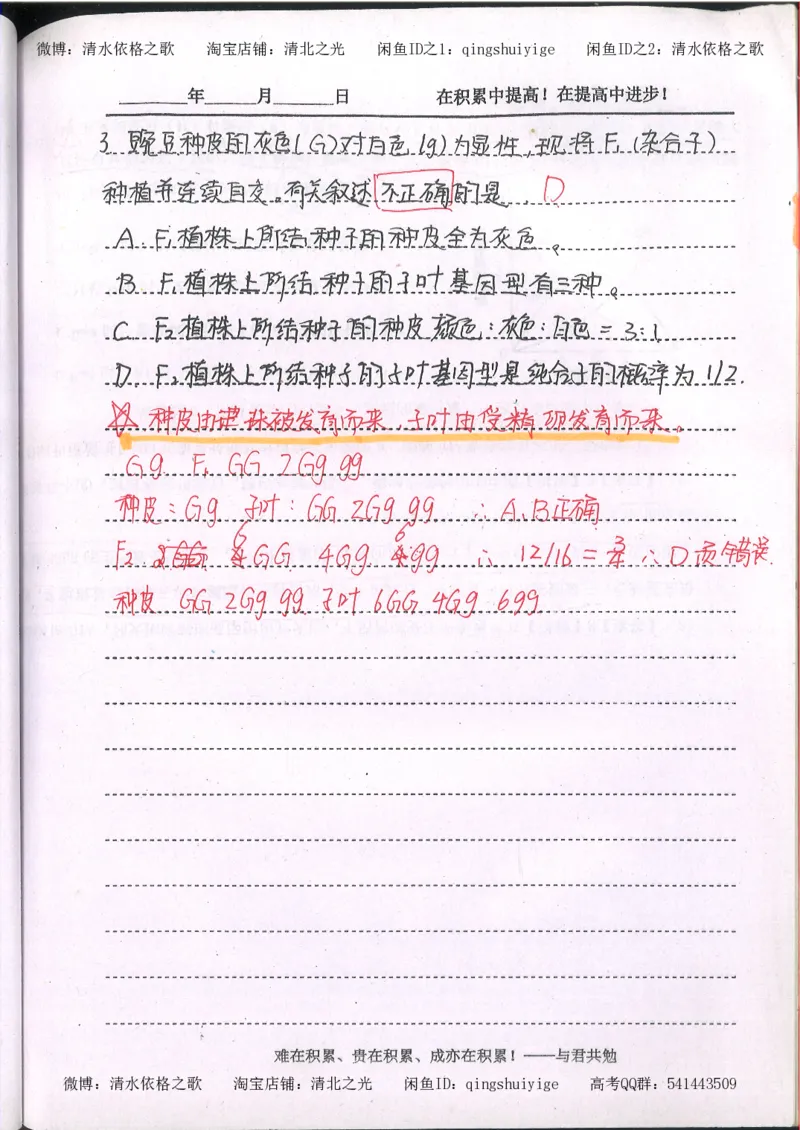 微博：清水依格之歌 淘宝店铺：清北之光 闲鱼ID之1：qingshuiyige 闲鱼ID之2：清水依格之歌
年 月 日 在积累中提高！在提高中进步！
3. 豌豆种皮的灰色(G)对白色(g)为显性,现将F₁(杂合子)
种植并连续自交。有关叙述不正确的是 D
A. F₁植株上所结种子的种皮全为灰色。
B. F₁植株上所结种子的子叶基因型有三种。
C. F₂植株上所结种子的种皮颜色:灰色:白色=3:1
D. F₂植株上所结种子的子叶基因型是纯合子的概率为1/2.
种皮由珠被发育而来,子叶由受精卵发育而来。
Gg F₁ GG 2Gg gg
种皮:Gg 子叶:GG 2Gg gg ∴A.B正确
F₂ 6GG 4Gg 6gg ∴ 12/16= ∴D项错误.
种皮 GG 2Gg gg 子叶 6GG 4Gg 6gg
难在积累、贵在积累、成亦在积累！——与君共勉
微博：清水依格之歌 淘宝店铺：清北之光 闲鱼ID：qingshuiyige 高考QQ群：541443509